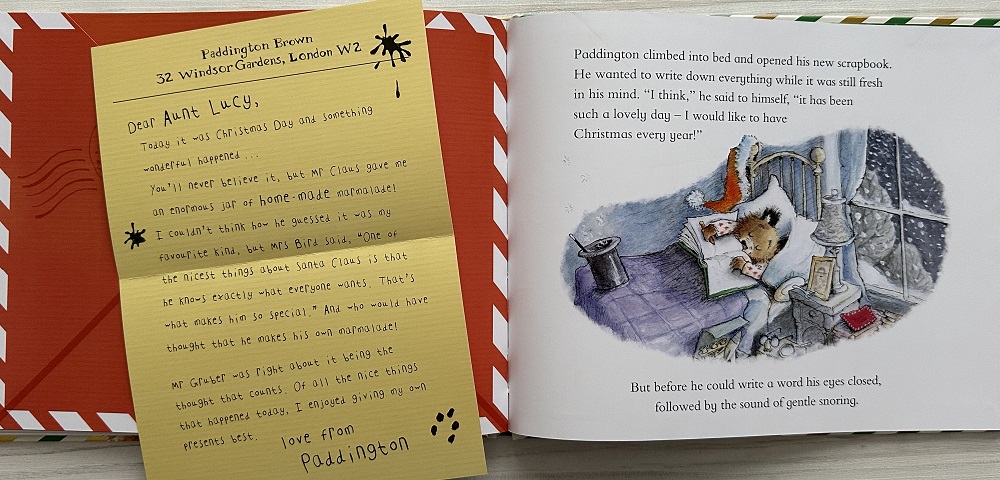 Paddington Brown
32 Windsor Gardens, London W2
Dear Aunt Lucy,
Today it was Christmas Day and something
wonderful happened ...
You'll never believe it, but Mr Claus gave me
an enormous jar of home-made marmalade!
I couldn't think how he guessed it was my
favourite kind, but Mrs Bird said, "One of
the nicest things about Santa Claus is that
he knows exactly what everyone wants. That's
what makes him so special." And who would have
thought that he makes his own marmalade!
Mr Gruber was right about it being the
thought that counts. Of all the nice things
that happened today, I enjoyed giving my own
presents best.
love from
Paddington
Paddington climbed into bed and opened his new scrapbook.
He wanted to write down everything while it was still fresh
in his mind. “I think,” he said to himself, “it has been
such a lovely day – I would like to have
Christmas every year!”
But before he could write a word his eyes closed,
followed by the sound of gentle snoring.